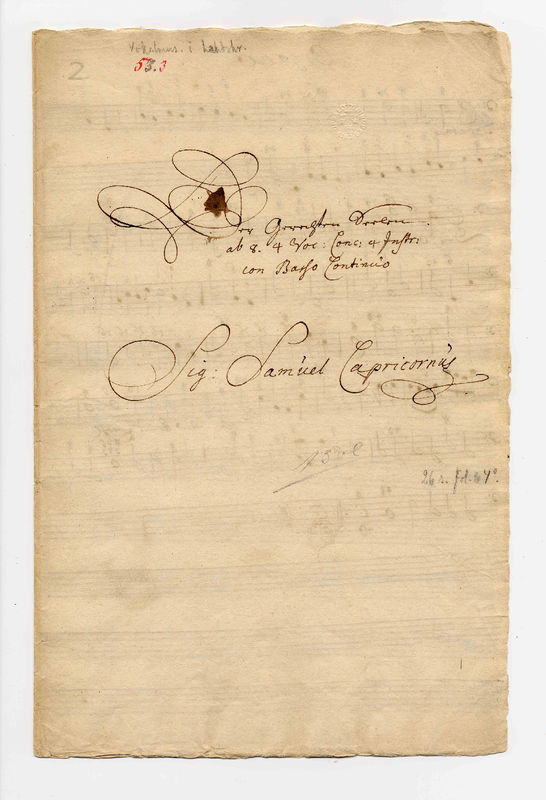 Vok. mus. i hdskr.
2
53.3
Der Gerechten Seelen.
ab 8. 4 Voc: Conc: 4 Instr:
con Basso Continuo
Sig: Samuel Capricornus
26 s. fol. & 4°.